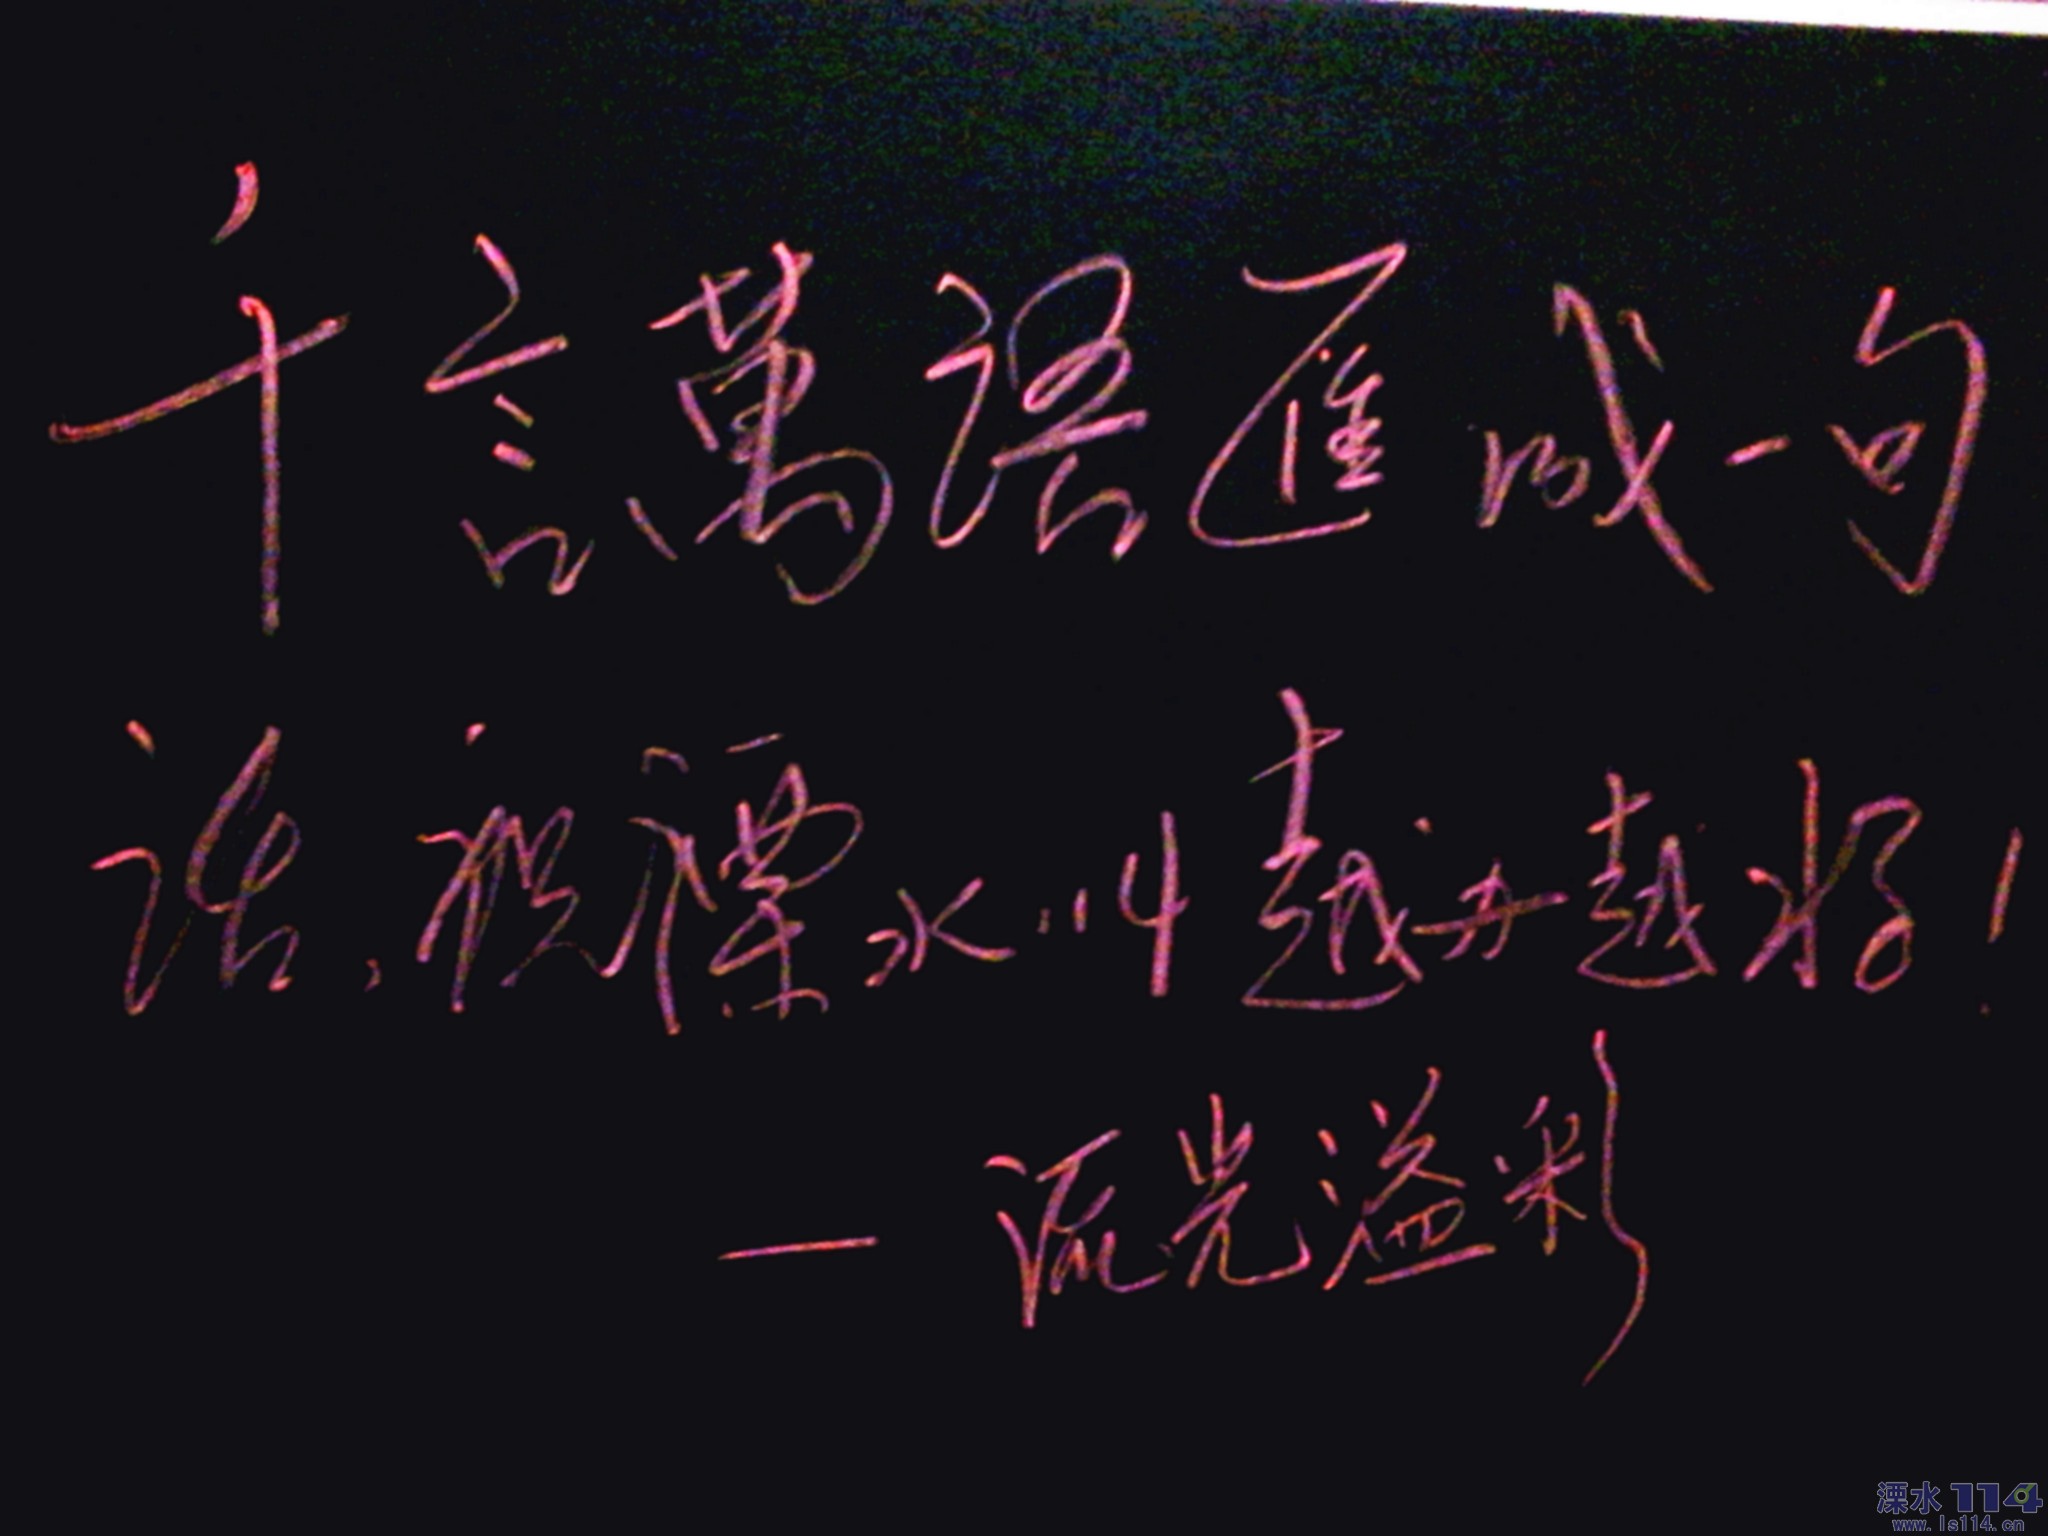 千言萬語匯成一句
话,祝溧水114越办越好!
— 流光溢彩
溧水114
www.ls114.cn